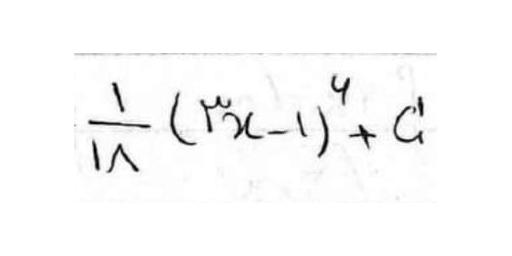 ۱/۱۸ (۳x-۱)^۶ + C